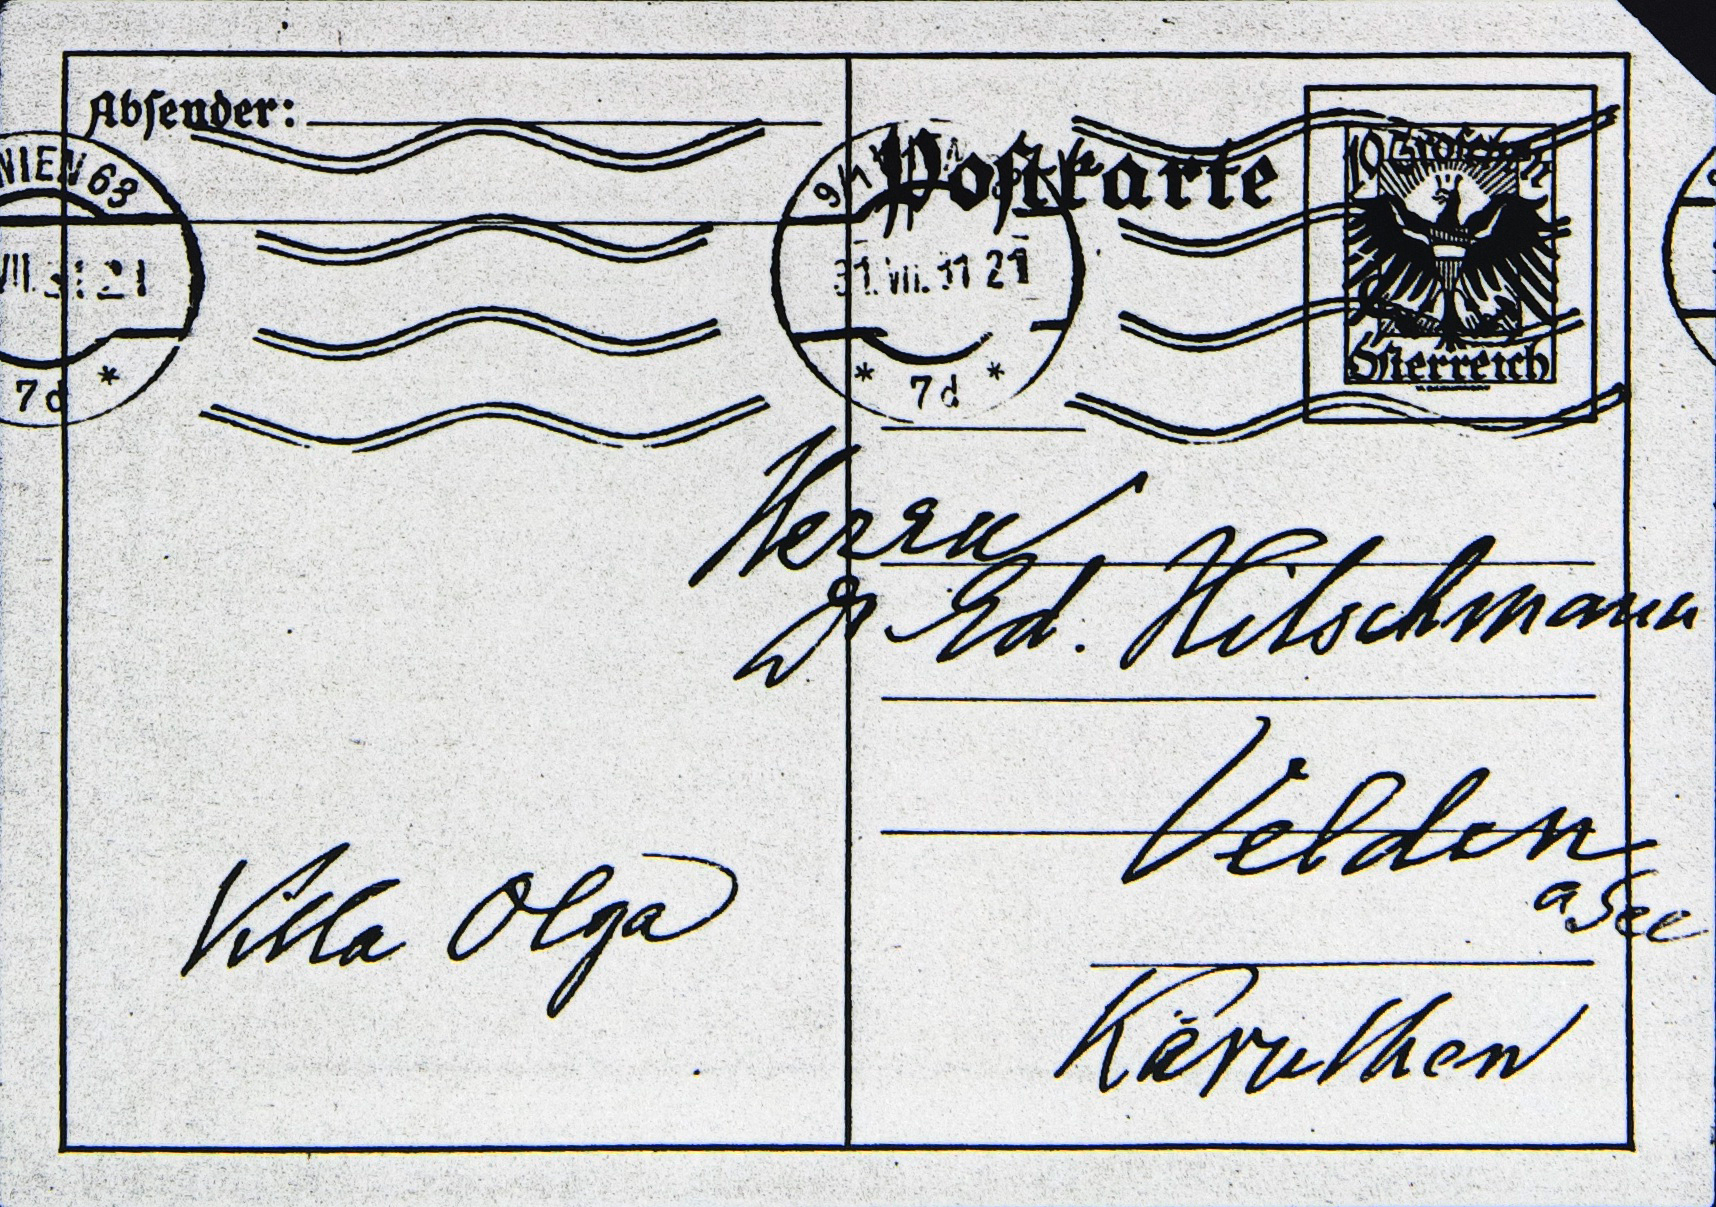 Absender:
WIEN 63
VII.31.21
* 7d *
Postkarte
9/1 WIEN
31.VII.31 21
* 7d *
10 Groschen
Österreich
Herrn
Dr Ed. Hitschmann
Velden
a See
Villa Olga
Kärnthen